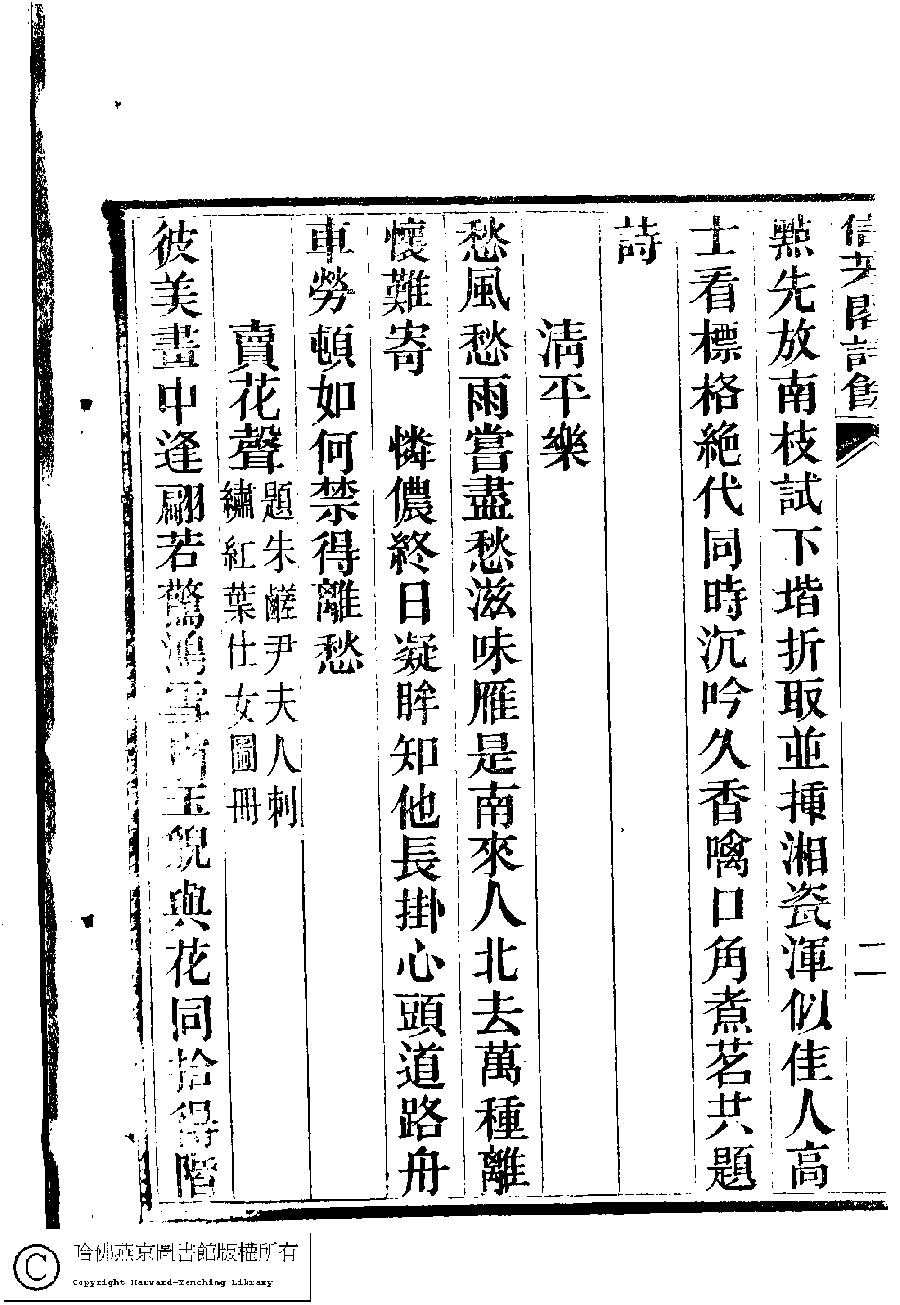 閣詩餘
二
㸃先放南枝試下堦折取並揷湘瓷渾似佳人高
士看標格絶代同時沉吟久香噙口角煮茗共題
詩
清平樂
愁風愁雨嘗盡愁滋味雁是南來人北去萬種離
懷難寄　憐儂終日凝眸知他長掛心頭道路舟
車勞頓如何禁得離愁
賣花聲題朱鹺尹夫人刺
繡紅葉仕女圖冊
彼美畫中逢翩若驚鴻雲玉貌與花同拾得階
哈佛燕京圖書館版權所有
Copyright Harvard-Yenching Library